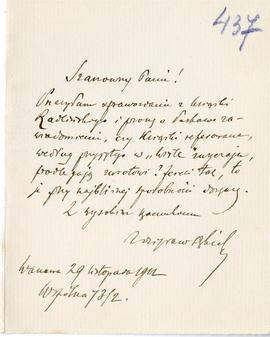 437
Szanowny Panie!
Przesyłam sprawozdanie z książki
Radlińskiego i proszę o łaskawe za-
wiadomienie, czy książki referowane,
według przyjętego w „Wiśle" zwyczaju,
podlegają zwrotowi; jeżeli tak, to
je przy najbliższej sposobności
Z wysokim szacunkiem
Warszawa 29 listopada
Wspólna 73/2.